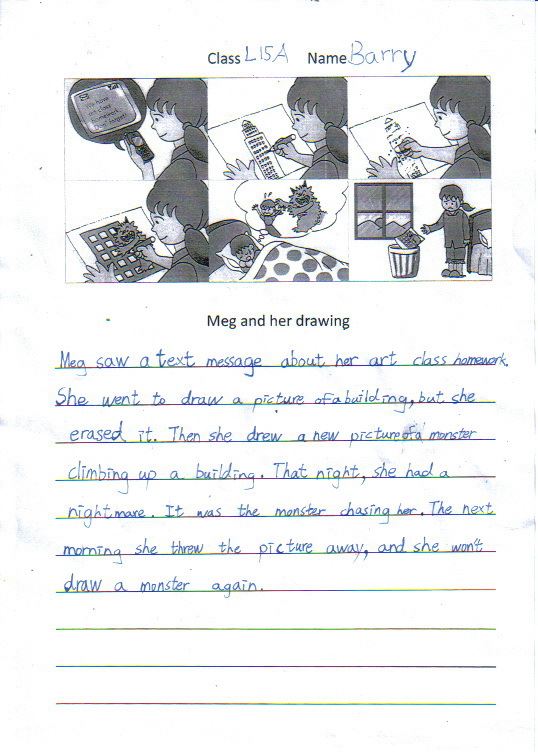 Class L15A Name Barry
We have
art class
homework.
Don't forget!
Meg and her drawing
Meg saw a text message about her art class homework.
She went to draw a picture of a building, but she
erased it. Then she drew a new picture of a monster
climbing up a building. That night, she had a
nightmare. It was the monster chasing her. The next
morning she threw the picture away, and she won't
draw a monster again.